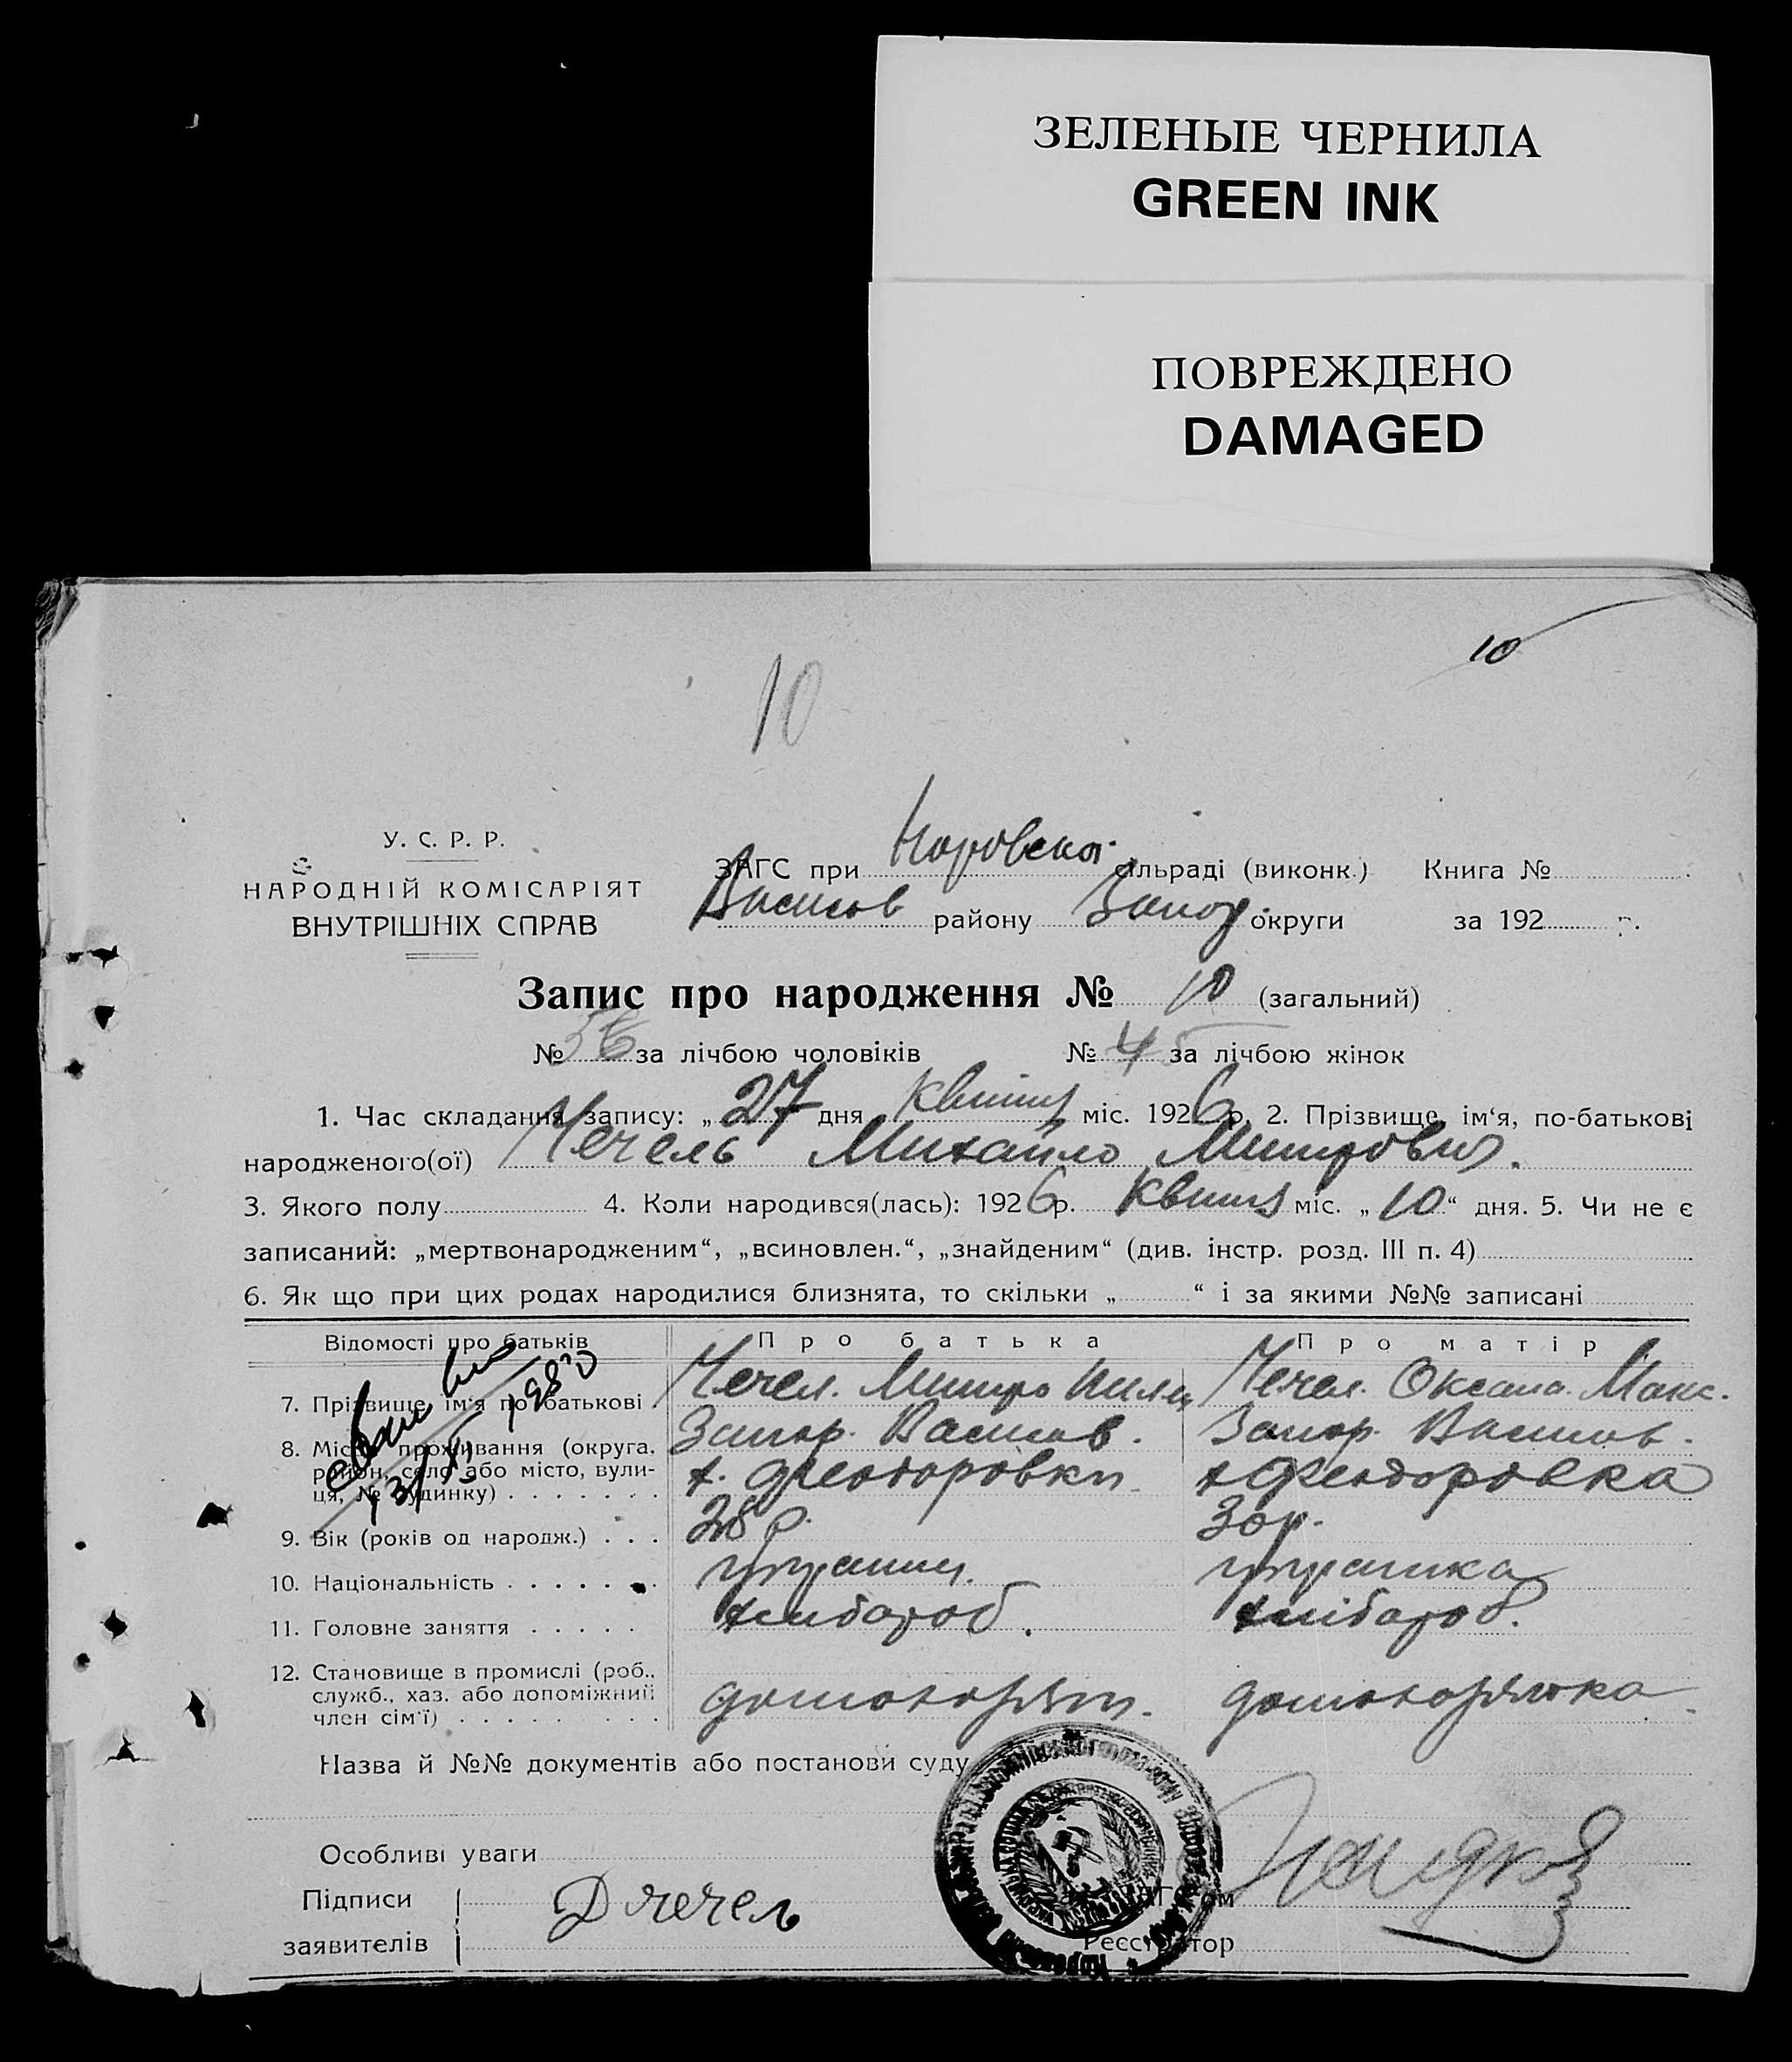 ЗЕЛЕНЫЕ ЧЕРНИЛА
GREEN INK
ПОВРЕЖДЕНО
DAMAGED
10
10
У. С. Р. Р.
НАРОДНІЙ КОМІСАРІЯТ
ВНУТРІШНІХ СПРАВ
ЗАГС при сільраді (виконк.) Книга №
району Запор. округи за 192 р.
Запис про народження № 10 (загальний)
№ за лічбою чоловіків № 4 за лічбою жінок
1. Час складання запису: „ 27 дня квітня міс. 1926 р. 2. Прізвище, ім‘я, по-батькові
народженого(ої) Чечель Михайло Митрович.
3. Якого полу 4. Коли народився(лась): 1926 р. квітня міс. „ 10 “ дня. 5. Чи не є
записаний: „мертвонародженим“, „всиновлен.“, „знайденим“ (див. інстр. розд. III п. 4)
6. Як що при цих родах народилися близнята, то скільки „ “ і за якими №№ записані
Відомості про батьків Про батька Про матір
7. Прізвище, ім‘я по батькові Чечел. Митро Чечел. Оксана Макс.
8. Місце проживання (округа, Запор. Васил̣ів. Запор. Василів.
район, село або місто, вули-
ця, № будинку) х. Феодоровки х Феодоровка
9. Вік (років од народж.) 28 р. 30 р.
10. Національність українец. українка
11. Головне заняття хлібороб. хлібороб.
12. Становище в промислі (роб.,
служб., хаз. або допоміжний
член сім‘ї) домохозяїн. домохозяйка
1980
Назва й №№ документів або постанови суду
Особливі уваги
Підписи
заявителів Д Чечель
Реєстратор